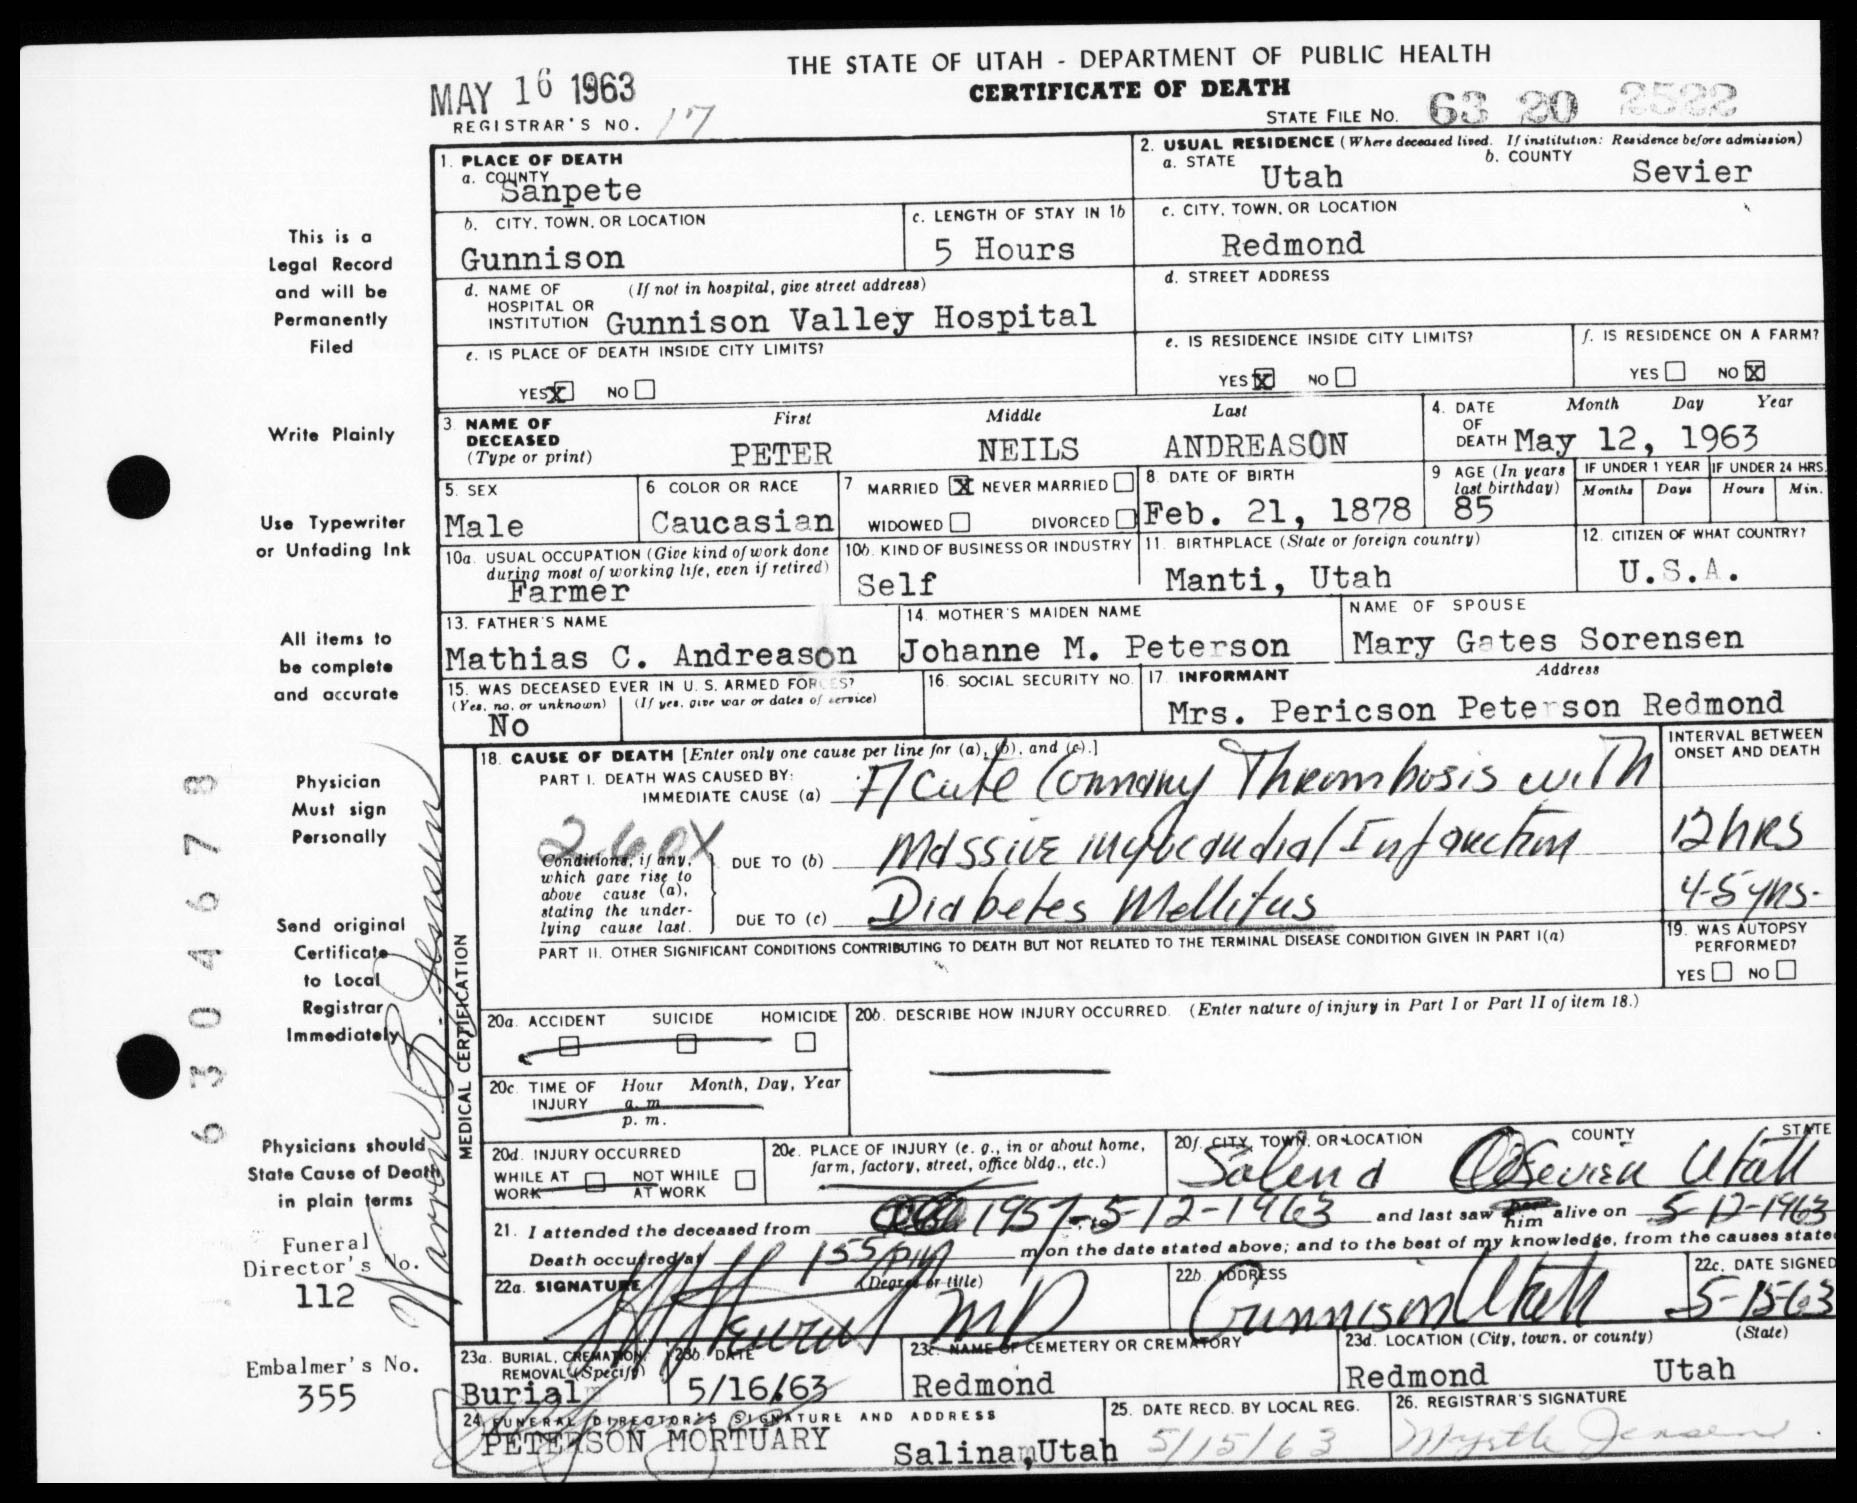 THE STATE OF UTAH - DEPARTMENT OF PUBLIC HEALTH
CERTIFICATE OF DEATH
MAY 16 1963
REGISTRAR'S NO. 17
STATE FILE NO. 63 20 2522
1. PLACE OF DEATH
a. COUNTY
Sanpete
2. USUAL RESIDENCE (Where deceased lived. If institution: Residence before admission)
a. STATE Utah b. COUNTY Sevier
b. CITY, TOWN, OR LOCATION
Gunnison
c. LENGTH OF STAY IN 1b
5 Hours
c. CITY, TOWN, OR LOCATION
Redmond
d. NAME OF HOSPITAL OR INSTITUTION (If not in hospital, give street address)
Gunnison Valley Hospital
d. STREET ADDRESS
e. IS PLACE OF DEATH INSIDE CITY LIMITS?
YES X NO
e. IS RESIDENCE INSIDE CITY LIMITS?
YES X NO
f. IS RESIDENCE ON A FARM?
YES NO X
3. NAME OF DECEASED (Type or print)
First Middle Last
PETER NEILS ANDREASON
4. DATE OF DEATH Month Day Year
May 12, 1963
5. SEX
Male
6 COLOR OR RACE
Caucasian
7 MARRIED X NEVER MARRIED
WIDOWED DIVORCED
8. DATE OF BIRTH
Feb. 21, 1878
9 AGE (In years last birthday)
85
IF UNDER 1 YEAR IF UNDER 24 HRS.
Months Days Hours Min.
10a. USUAL OCCUPATION (Give kind of work done during most of working life, even if retired)
Farmer
10b. KIND OF BUSINESS OR INDUSTRY
Self
11. BIRTHPLACE (State or foreign country)
Manti, Utah
12. CITIZEN OF WHAT COUNTRY?
U.S.A.
13. FATHER'S NAME
Mathias C. Andreason
14. MOTHER'S MAIDEN NAME
Johanne M. Peterson
NAME OF SPOUSE
Mary Gates Sorensen
15. WAS DECEASED EVER IN U. S. ARMED FORCES?
(Yes, no, or unknown) (If yes, give war or dates of service)
No
16. SOCIAL SECURITY NO.
17 INFORMANT Address
Mrs. Pericson Peterson Redmond
MEDICAL CERTIFICATION
18. CAUSE OF DEATH [Enter only one cause per line for (a), (b), and (c).]
INTERVAL BETWEEN ONSET AND DEATH
PART I. DEATH WAS CAUSED BY:
IMMEDIATE CAUSE (a) Acute Coronary Thrombosis with
260X
Conditions, if any, which gave rise to above cause (a), stating the underlying cause last.
DUE TO (b) Massive Myocardial Infarction 12 hrs
DUE TO (c) Diabetes Mellitus 4-5 yrs.
PART II. OTHER SIGNIFICANT CONDITIONS CONTRIBUTING TO DEATH BUT NOT RELATED TO THE TERMINAL DISEASE CONDITION GIVEN IN PART I(a)
19. WAS AUTOPSY PERFORMED?
YES NO
20a. ACCIDENT SUICIDE HOMICIDE
20b. DESCRIBE HOW INJURY OCCURRED. (Enter nature of injury in Part I or Part II of item 18.)
20c. TIME OF INJURY Hour Month, Day, Year
a. m.
p. m.
20d. INJURY OCCURRED
WHILE AT WORK NOT WHILE AT WORK
20e. PLACE OF INJURY (e. g., in or about home, farm, factory, street, office bldg., etc.)
20f. CITY, TOWN, OR LOCATION COUNTY STATE
Salina Sevier Utah
21. I attended the deceased from 1957, to 5-12-1963 and last saw him alive on 5-12-1963
Death occurred at 155 pm m on the date stated above; and to the best of my knowledge, from the causes state
22a. SIGNATURE (Degree or title)
MD
22b. ADDRESS
Gunnison Utah
22c. DATE SIGNED
5-15-63
23a. BURIAL, CREMATION, REMOVAL (Specify)
Burial
23b. DATE
5/16/63
23c. NAME OF CEMETERY OR CREMATORY
Redmond
23d. LOCATION (City, town, or county) (State)
Redmond Utah
24. FUNERAL DIRECTOR'S SIGNATURE AND ADDRESS
PETERSON MORTUARY Salina, Utah
25. DATE RECD. BY LOCAL REG.
5/15/63
26. REGISTRAR'S SIGNATURE
Myrtle Jensen
This is a
Legal Record
and will be
Permanently
Filed
Write Plainly
Use Typewriter
or Unfading Ink
All items to
be complete
and accurate
Physician
Must sign
Personally
Send original
Certificate
to Local
Registrar
Immediately
Physicians should
State Cause of Death
in plain terms
Funeral
Director's No.
112
Embalmer's No.
355
6304678